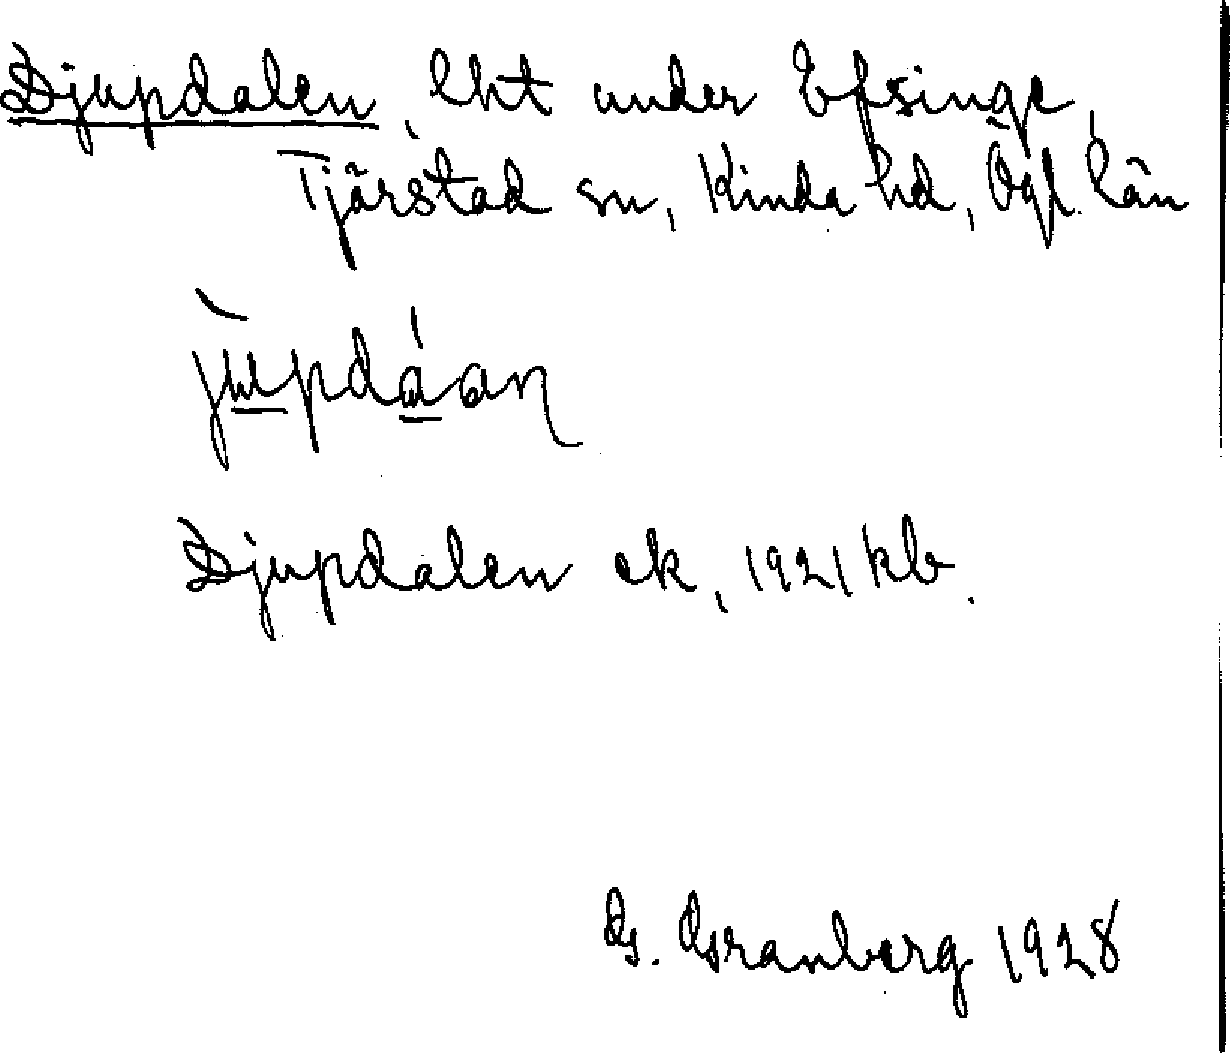 Djupdalen, lht under Efsinge,
Tjärstad sn, Kinda hd, Ögl. län
j̀updáan
Djupdalen ek, 1921 kb.
G. Granberg 1928